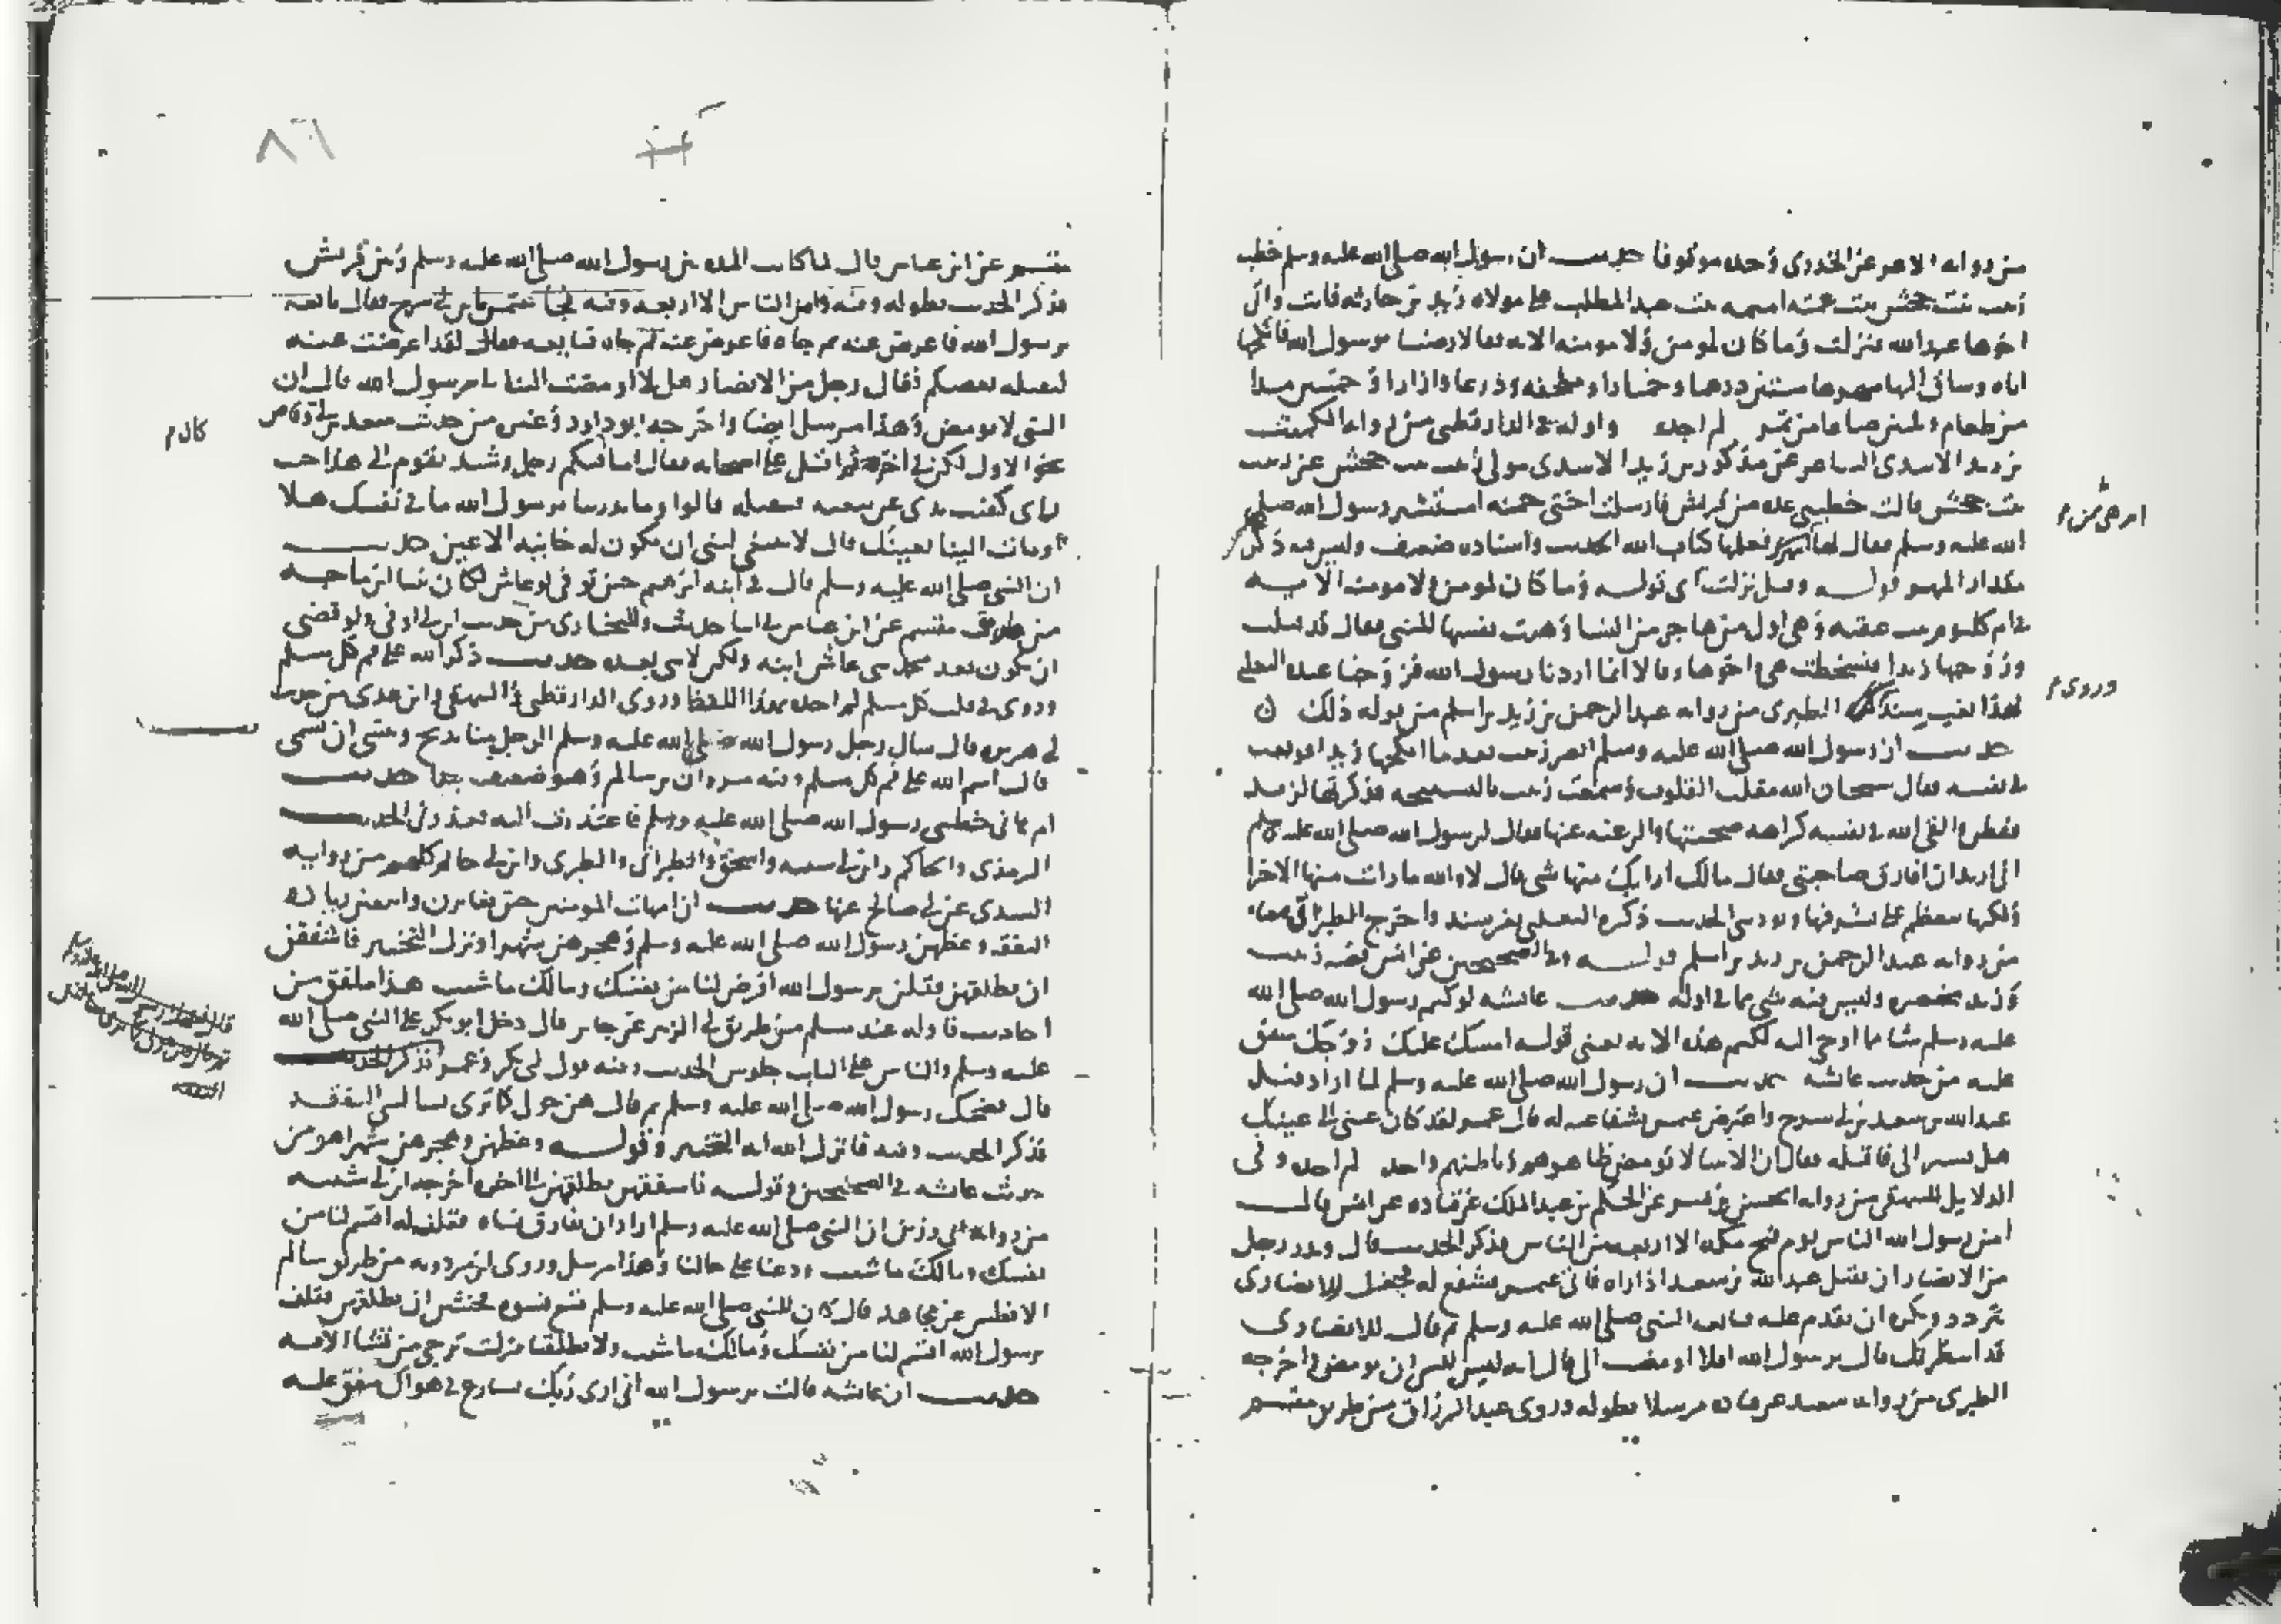 من رواية الاعمر عن الخدري وحده موقوفا حديث ان رسول الله صلى الله عليه وسلم خطب
زينب بنت جحش بنت عمته اميمة بنت عبد المطلب على مولاه زيد بن حارثة فابت وابى
اخوها عبد الله فنزلت وما كان لمومن ولا مومنة الاية فقالا رضينا يرسول الله فانكحها
اياه وساق اليها مهرها ستين درهما وخمارا وملحفة ودرعا وازارا وخمسين مدا
من طعام وثلثين صاعا من تمر لم اجده واوله في الدارقطني من رواية الكميت
بن زيد الاسدي الشاعر عن مذكور بن زيد الاسدي مولى زينب بنت جحش عن زينب
بنت جحش قالت خطبني عدة من قريش فارسلت اختي حمنة استشير رسول الله صلى
الله عليه وسلم فقال لها اين هي ممن يعلمها كتاب الله الحديث واسناده ضعيف وليس فيه ذكر
مقدار المهر قوله وقيل نزلت اي قوله وما كان لمومن ولا مومنة الاية
في ام كلثوم بنت عقبة وهي اول من هاجر من النسا وهبت نفسها للنبي فقال قد قبلت
وزوجها زيدا فسخطت هي واخوها وقالا انما اردنا رسول الله فزوجنا عبده الثعلبي
هذا بغير سند الطبري من رواية عبد الرحمن بن زيد بن اسلم من قوله ذلك ن
حديث ان رسول الله صلى الله عليه وسلم ابصر زينب بعد ما انكحها زيدا فوقعت
في نفسه فقال سبحان الله مقلب القلوب وسمعت زينب بالتسبيحة فذكرتها لزيد
ففطن والقى الله في نفسه كراهة صحبتها والرغبة عنها فقال لرسول الله صلى الله عليه وسلم
اني اريد ان افارق صاحبتي فقال مالك ارابك منها شي قال لا والله ما رايت منها الا خيرا
ولكنها تتعظم على لشرفها وتوذيني الحديث ذكره الثعلبي بغير سند واخرج الطبراني معناه
من رواية عبد الرحمن بن زيد بن اسلم قوله وفي الصحيحين عن انس قصة زينب
وزيد مختصرة وليس فيه شي مما في اوله حديث عائشة لو كتم رسول الله صلى الله
عليه وسلم شيا مما اوحي اليه لكتم هذه الاية يعني قوله امسك عليك زوجك متفق
عليه من حديث عائشة حديث ان رسول الله صلى الله عليه وسلم لما اراد قتل
عبد الله بن سعد بن ابي سرح واعترض عثمن بشفاعته له قال عمر لقد كان عيني الى عينيك
هل تشير الي فاقتله فقال ان الانبيا لا تومض ظاهرهم وباطنهم واحد لم اجده وفي
الدلايل للبيهقي من رواية الحسن بن بشر عن الحكم بن عبد الملك عن قتادة عن انس قال
امن رسول الله الناس يوم فتح مكة الا اربعة من الناس فذكر الحديث قال ونذر رجل
من الانصار ان يقتل عبد الله بن سعد اذا راه فاتى عثمن يشفع له فجعل الانصاري
يتردد ويكره ان يقدم عليه فبايعه النبي صلى الله عليه وسلم ثم قال للانصاري
قد انتظرتك قال يرسول الله افلا اومضت الي قال انه ليس للنبي ان يومض واخرجه
الطبري من رواية سعيد عن قتادة مرسلا بطوله وروى عبد الرزاق من طريق مقسم
ابن هي ممن
وروى
٨٦
مقسم عن ابن عباس قال لما كانت المدة بين رسول الله صلى الله عليه وسلم وبين قريش
فذكر الحديث بطوله وفيه وامن الناس الا اربعة وفيه فجا عثمن بابن ابي سرح فقال بايعه
يرسول الله فاعرض عنه ثم جاه فاعرض عنه ثم جاه فبايعه فقال لقد اعرضت عنه
ليقتله بعضكم فقال رجل من الانصار هلا اومضت الينا يرسول الله قال ان
النبي لا يومض وهذا مرسل ايضا واخرجه ابو داود وغيره من حديث سعد بن ابي وقاص
نحو الاول لكن في اخره ثم اقبل على اصحابه فقال اما فيكم رجل رشيد يقوم الى هذا حيث
راى كففت يدي عن بيعته فيقتله قالوا وما يدرينا يرسول الله ما في نفسك هلا
اومات الينا بعينك قال لا ينبغي لنبي ان يكون له خاينة الاعين حديث
ان النبي صلى الله عليه وسلم قال في ابنه ابرهيم حين توفي لو عاش لكان نبيا ابن ماجه
من طريق مقسم عن ابن عباس في اثنا حديث وللبخاري من حديث ابن ابي اوفى ولو قضي
ان يكون بعد محمد نبي عاش ابنه ولكن لا نبي بعده حديث ذكر الله على فم كل مسلم
وروى في قلب كل مسلم لم اجده بهذا اللفظ وروى الدارقطني والبيهقي وابن عدي من حديث
ابي هريرة قال سال رجل رسول الله صلى الله عليه وسلم الرجل منا يذبح ونسى ان يسمي
قال اسم الله على فم كل مسلم وفيه مروان بن سالم وهو ضعيف جدا حديث
ام هاني خطبني رسول الله صلى الله عليه وسلم فاعتذرت اليه فعذرني الحديث
الترمذي والحاكم وابن ابي شيبة واسحق والطبراني والطبري وابن ابي حاتم كلهم من رواية
السدي عن ابي صالح عنها حديث ان امهات المومنين حين تغايرن وابتغين زيادة
النفقة وغظن رسول الله صلى الله عليه وسلم وهجرهن شهرا ونزل التخيير فاشفقن
ان يطلقهن فقلن يرسول الله افرض لنا من نفسك ومالك ما شيت هذا ملفق من
احاديث فاوله عند مسلم من طريق ابي الزبير عن جابر قال دخل ابو بكر على النبي صلى الله
عليه وسلم والناس على الباب جلوس الحديث وفيه قول ابي بكر وعمر فذكر الحديث
قال فضحك رسول الله صلى الله عليه وسلم ثم قال هن حولي كما ترى يسالنني النفقة
فذكر الحديث وفيه فانزل الله اية التخيير وقوله وغظن وهجرهن شهرا هو من
حديث عائشة في الصحيحين وقوله فاشفقن يطلقهن الى اخره اخرجه ابن ابي شيبة
من رواية ابي رزين ان النبي صلى الله عليه وسلم اراد ان يفارق نساه فقلن له اقسم لنا من
نفسك ومالك ما شيت ودعنا على حالنا وهذا مرسل وروى ابن مردويه من طريق سالم
الافطس عن مجاهد قال كان للنبي صلى الله عليه وسلم تسع نسوة فخشين ان يطلقهن فقلن
يرسول الله اقسم لنا من نفسك ومالك ما شيت ولا تطلقنا فنزلت ترجي من تشا الاية
حديث ان عائشة قالت يرسول الله اني ارى ربك يسارع في هواك متفق عليه